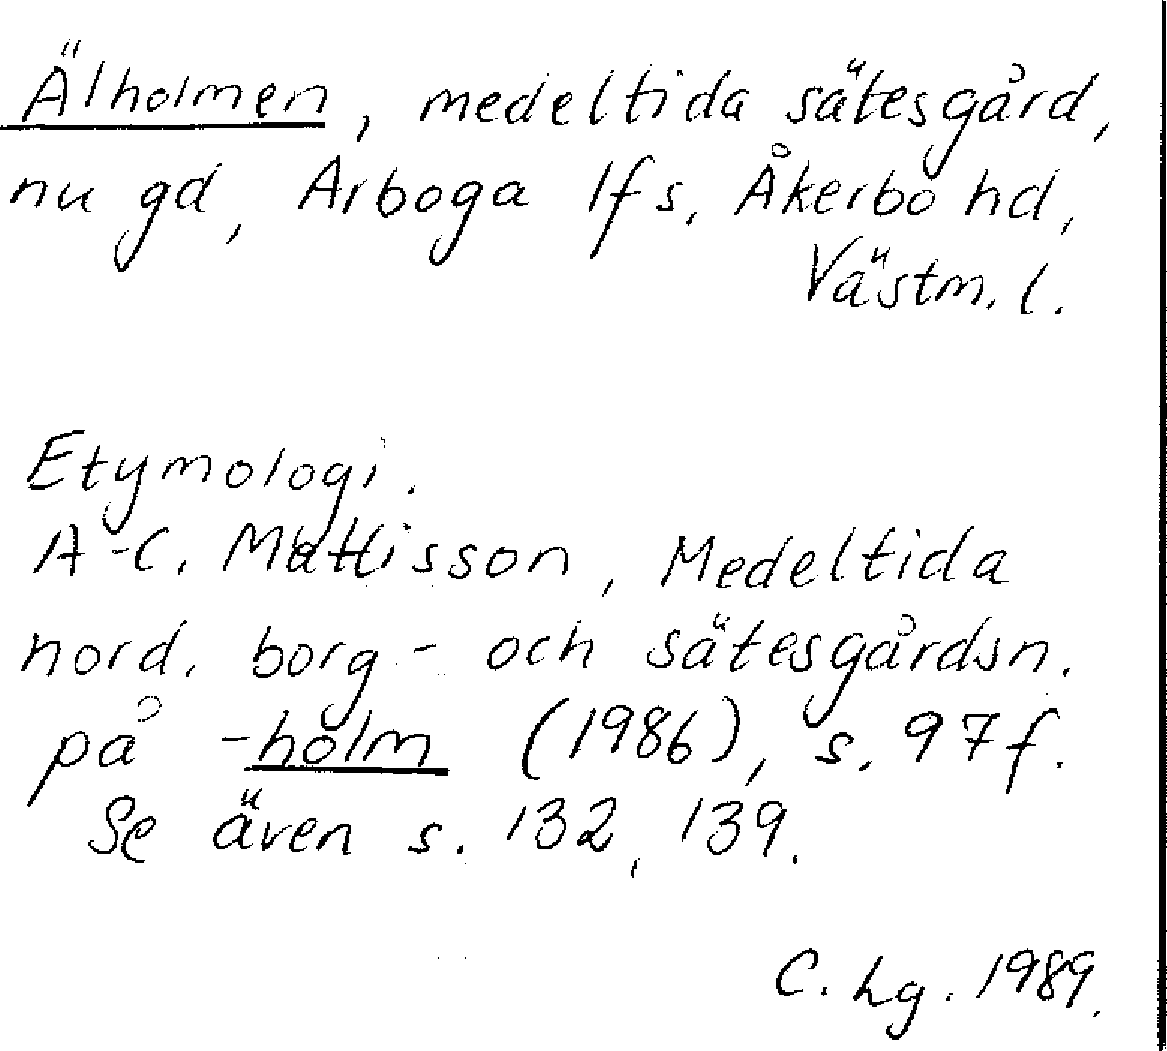 Älholmen, medeltida sätesgård,
nu gd, Arboga lfs, Åkerbo hd,
Västm. l.
Etymologi.
A-C. Mattisson, Medeltida
nord. borg- och sätesgårdsn.
på -holm (1986), s. 97f.
Se även s. 132, 139.
C. Lg. 1989.